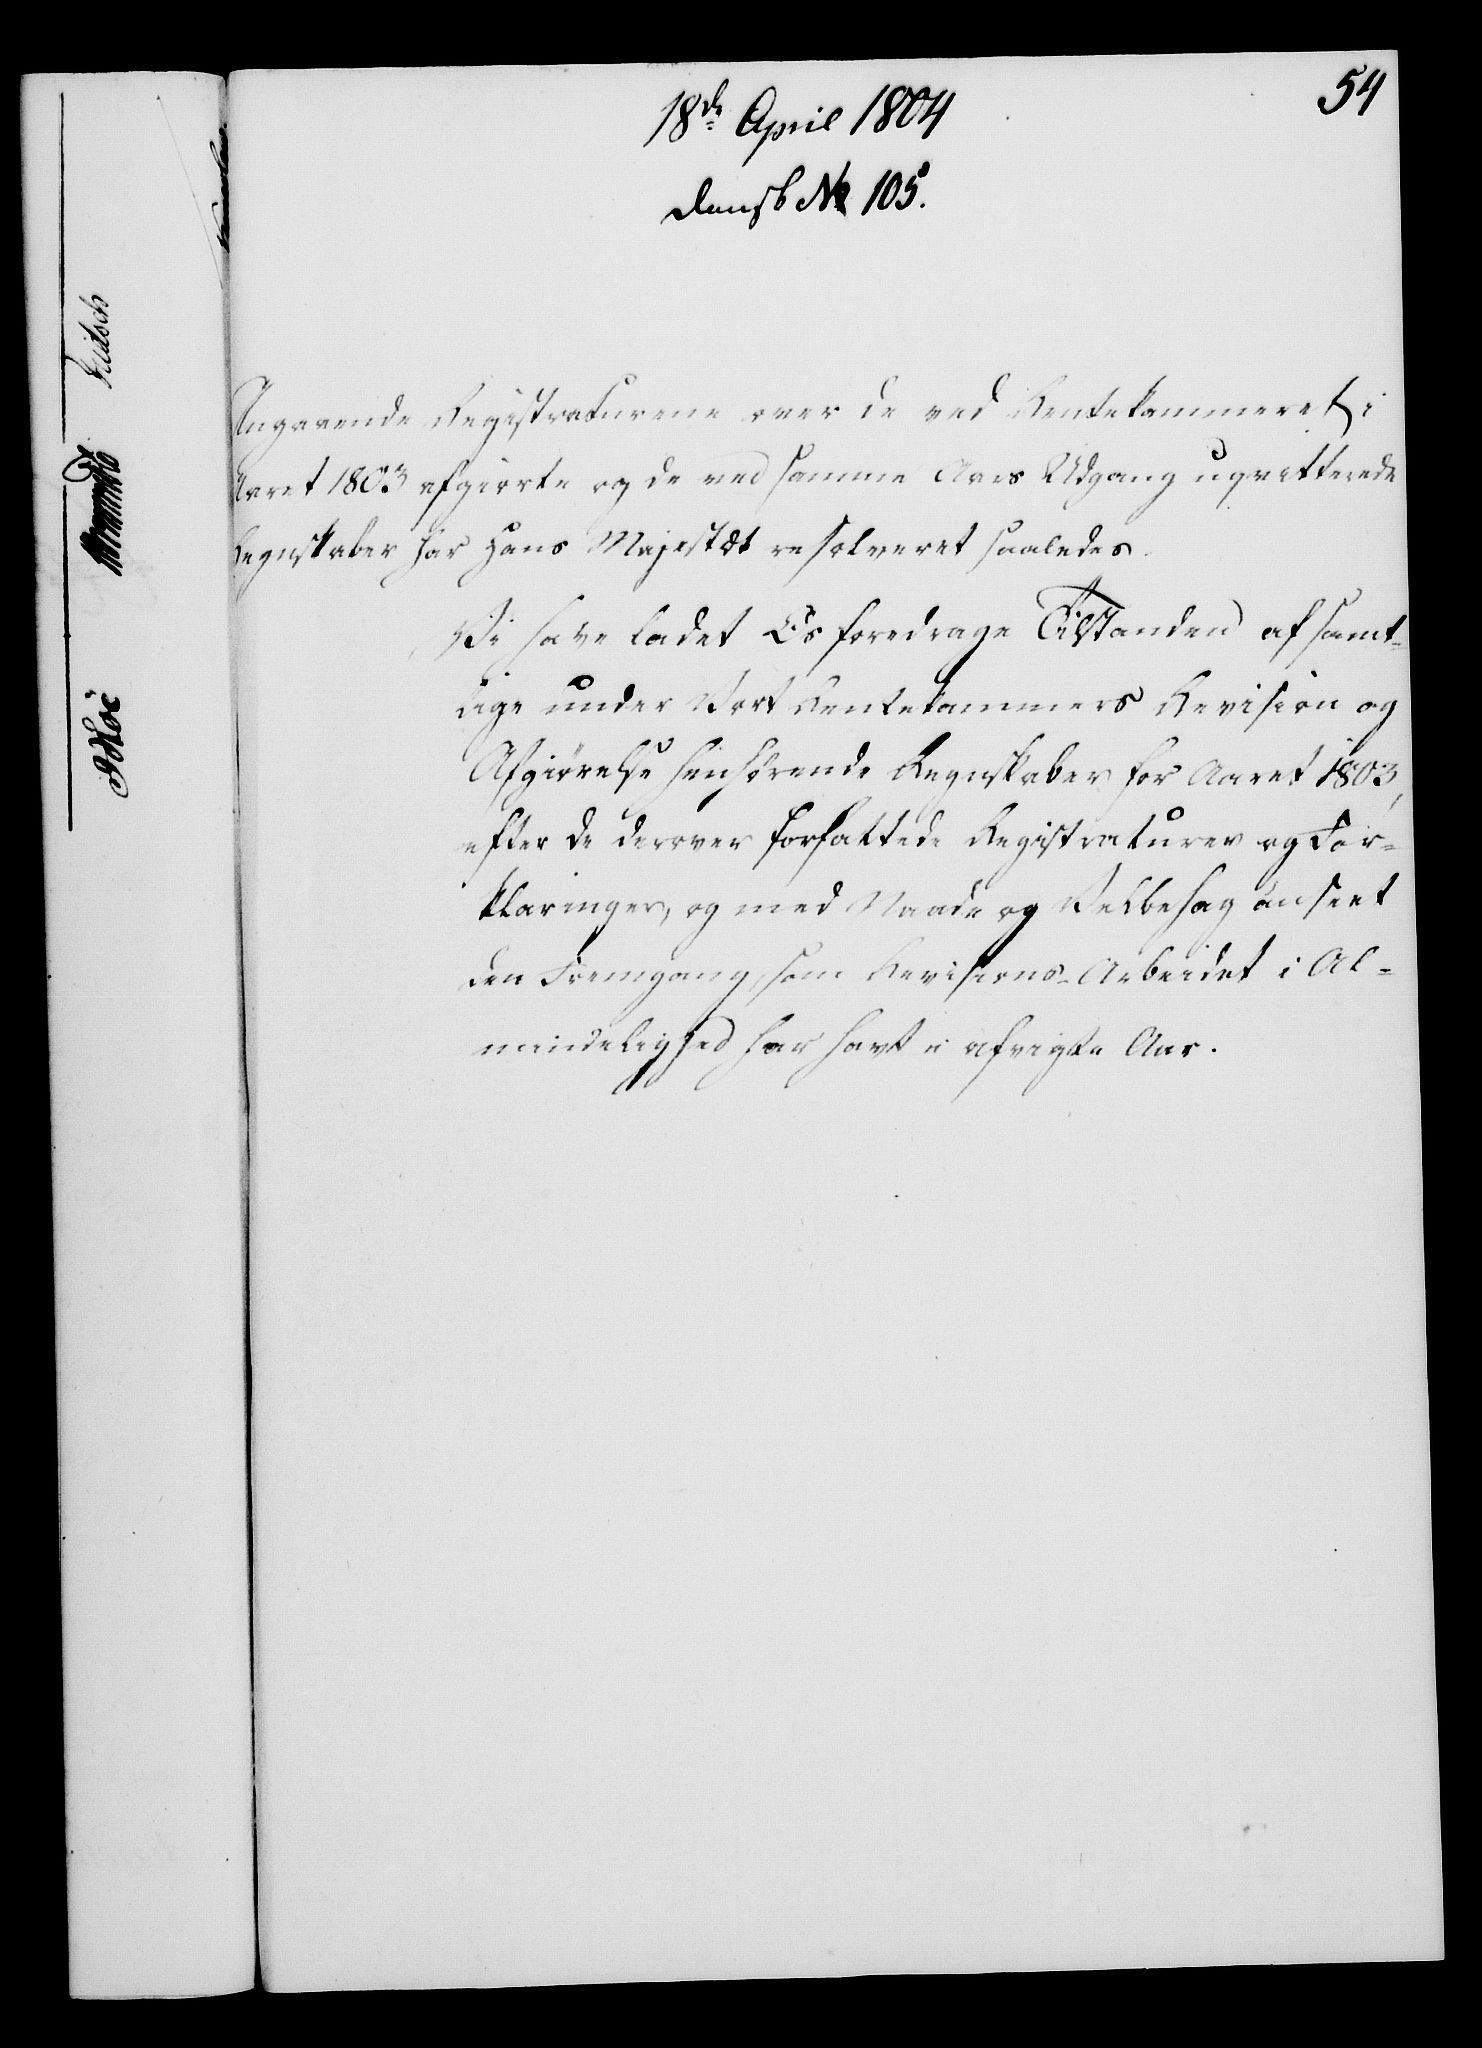 54
18de April 1804
Dansk No 105.
Angaaende Registraturene over de ved Rentekammeret i
Aaret 1803 afgiorte og de ved samme Aars Udgang uqvitterede
Regnskaber har Hans Majestæt resolveret saaledes.
Vi have ladet Os foredrage Tilstanden af samt-
lige under Vort Rentekammers Revision og
Afgiørelse henhørende Regnskaber for Aaret 1803,
efter de derover forfattede Registraturer og For-
klaringer, og med Naade og Velbehag anseet
den Fremgang, som Revisions-Arbeidet i Al-
mindelighed har havt i afvigte Aar.